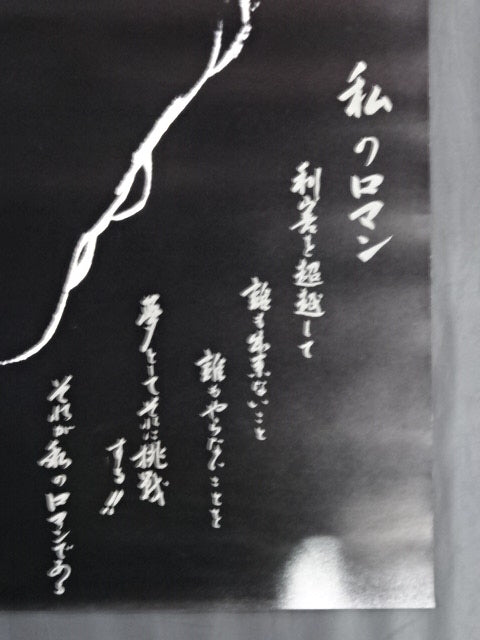 私のロマン
利害を超越して
誰も出来ないこと
誰もやらないことを
夢としてそれに挑戦
する!!
それが私のロマンである